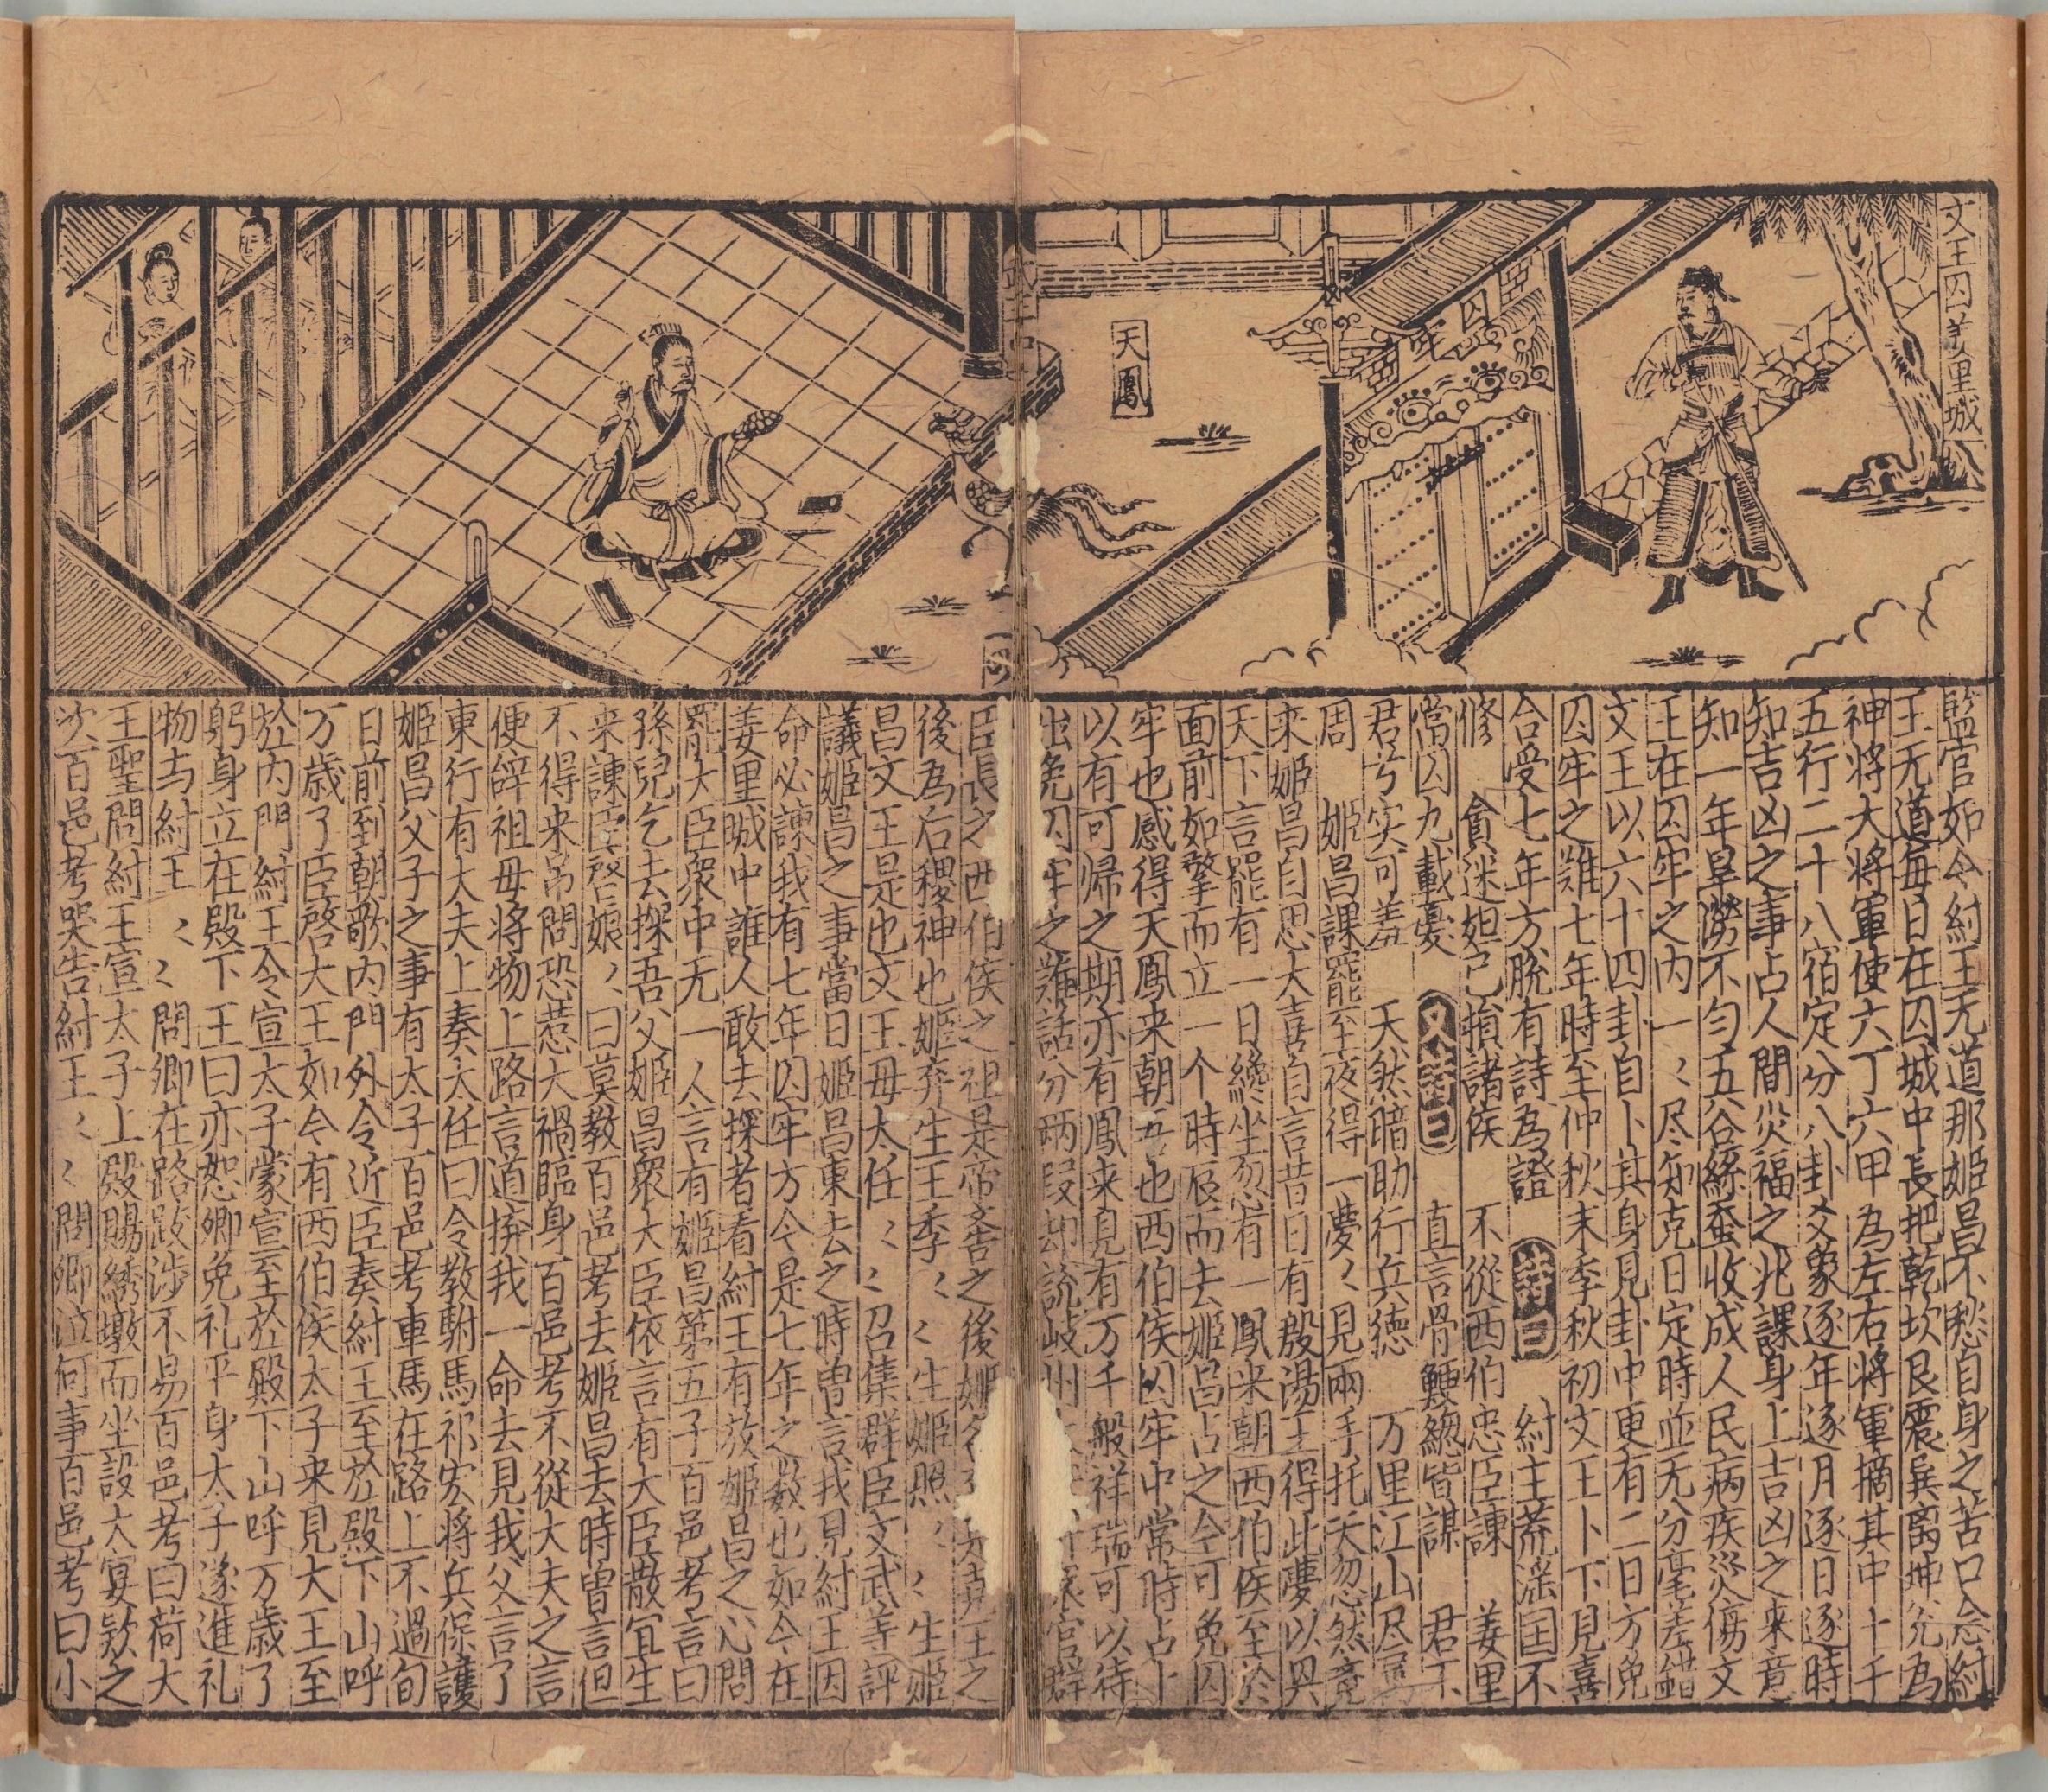 文王囚羑里城
囚牢
天鳳
監官如今紂王无道那姬昌不愁自身之苦口念紂
王无道每日在囚城中長把乾坎艮震巽离坤兊為
神将大将軍使六丁六甲為左右将軍摘其中十千
五行二十八宿定分八卦爻象逐年逐月逐日逐時
知吉凶之事占人間災福之兆課身上吉凶之来意
知一年旱澇不勻五谷絲蚕收成人民病疾災傷文
王在囚牢之内一〻尽知克日定時並无分毫差錯
文王以六十四卦自卜其身見卦中更有二日方免
囚牢之難七年時至仲秋末季秋初文王卜下見喜
合受七年方脫有詩為證 詩曰 紂主荒滛国不
修 貪迷妲己損諸侯 不從西伯忠臣諫 羑里
當囚九載憂 又詩曰 直言骨鯁緫皆謀 君不
君兮实可羞 天然暗助行兵徳 万里江山尽属
周 姬昌課罷至夜得一夢〻見兩手托天忽然竟
来姬昌自思大喜自言昔日有殷湯王得此夢以異
天下言罷有一日纔坐忽有一鳳来朝西伯侯至於
面前如擎而立一个時辰而去姬昌占之今可免囚
牢也感得天鳳来朝吾也西伯侯囚牢中常時占卜
以有可歸之期亦有鳳来見有万千般祥瑞可以待
出免囚牢之難話分两段却說岐州 官群
臣長之西伯侯之祖是帝嚳之後姬 之
後為后稷神也姬弃生王季〻〻生姬照〻〻生姬
昌文王是也文王母太任〻〻召集群臣文武等評
議姬昌之事當日姬昌東去之時曾言我見紂王因
命必諫我有七年囚牢方今是七年之数也如今在
姜里城中誰人敢去探者看紂王有放姬昌之心問
罷大臣衆中无一人言有姬昌第五子百邑考言曰
孫兒乞去探吾父姬昌衆大臣依言有大臣散宜生
来諫臣啓娘〻曰莫教百邑考去姬昌去時曾言但
不得来吊問恐惹大禍臨身百邑考不從大夫之言
便辝祖母将物上路言道捹我一命去見我父言了
東行有大夫上奏太任曰令教駙馬祁宏将兵保護
姬昌父子之事有太子百邑考車馬在路上不過旬
日前到朝歌内門外令近臣奏紂王至於殿下山呼
万歳了臣啓大王如今有西伯侯太子来見大王至
於内門紂王令宣太子蒙宣至於殿下山呼万歳了
躬身立在殿下王曰亦恕卿免礼平身太子遂進礼
物与紂王〻〻問卿在路跋涉不易百邑考曰荷大
王聖問紂王宣太子上殿賜綉墩而坐設大宴欵之
次百邑考哭告紂王〻〻問卿泣何事百邑考曰小